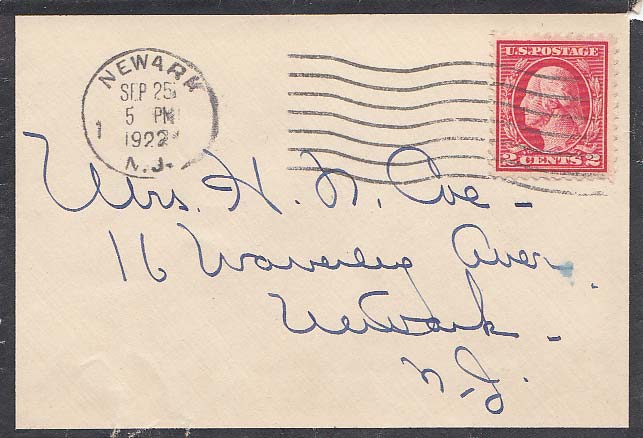 NEWARK
SEP 25
5 PM
1
1922
N.J.
U.S. POSTAGE
2 CENTS 2
Mrs. H. N. Coe -
16 Waverley Aver.
Newark -
N.J.